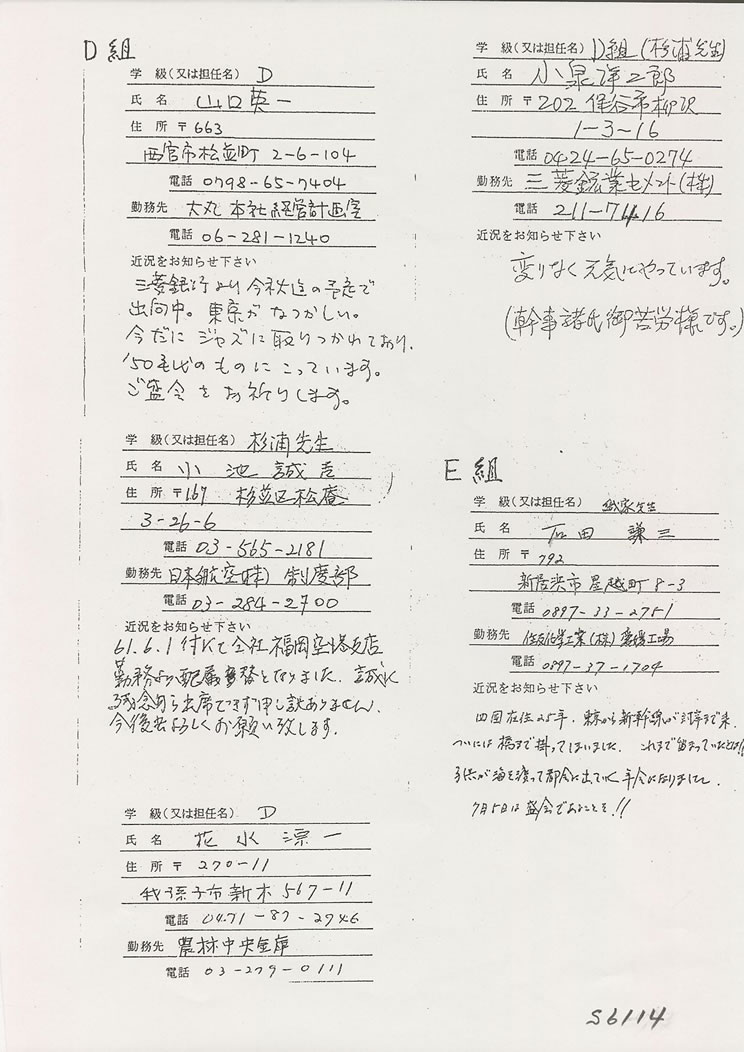 D組
学 級(又は担任名) D
氏 名 山口英一
住 所 〒663
西宮市松並町 2-6-104
電話 0798-65-7404
勤務先 大丸 本社経営計画室
電話 06-281-1240
近況をお知らせ下さい
三菱銀行より 今秋迄の予定で
出向中。東京がなつかしい。
今だに ジャズに取りつかれており、
'50年代のものにこっています。
ご盛会をお祈りします。
学 級(又は担任名) 杉浦先生
氏 名 小池誠
住 所 〒167 杉並区松庵
3-26-6
電話 03-565-2181
勤務先 日本航空(株) 制度部
電話 03-284-2700
近況をお知らせ下さい
61.6.1付にて会社福岡空港支店
勤務より配属替となりました. 誠に
残念ながら出席できず申し訳ありません.
今後共よろしくお願い致します.
学 級(又は担任名) D
氏 名 花水 一
住 所 〒 270-11
我孫子市新木 567-11
電話 0471-87-2946
勤務先 農林中央金庫
電話 03-279-0111
学 級(又は担任名) D組(杉浦先生)
氏 名 小泉洋二郎
住 所 〒202 保谷市柳沢
1-3-16
電話 0424-65-0274
勤務先 三菱鉱業セメント(株)
電話 211-7416
近況をお知らせ下さい
変りなく元気にやっています。
(幹事諸氏御苦労様です。)
E組
学 級(又は担任名) 先生
氏 名 石田 謙三
住 所 〒 792
新居浜市星越町 8-3
電話 0897-33-2751
勤務先 住友化学工業(株) 工場
電話 0897-37-1704
近況をお知らせ下さい
四国在住25年. 東京から新幹線が まで来
ついには橋まで掛ってしまいました. これまで
子供が海を渡って都会に出ていく年令になりました.
7月5日は盛会であることを!!
S6114